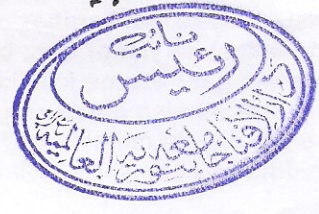 نائب
رئيس
دارالافتاء جامعه بنوريه العالميه